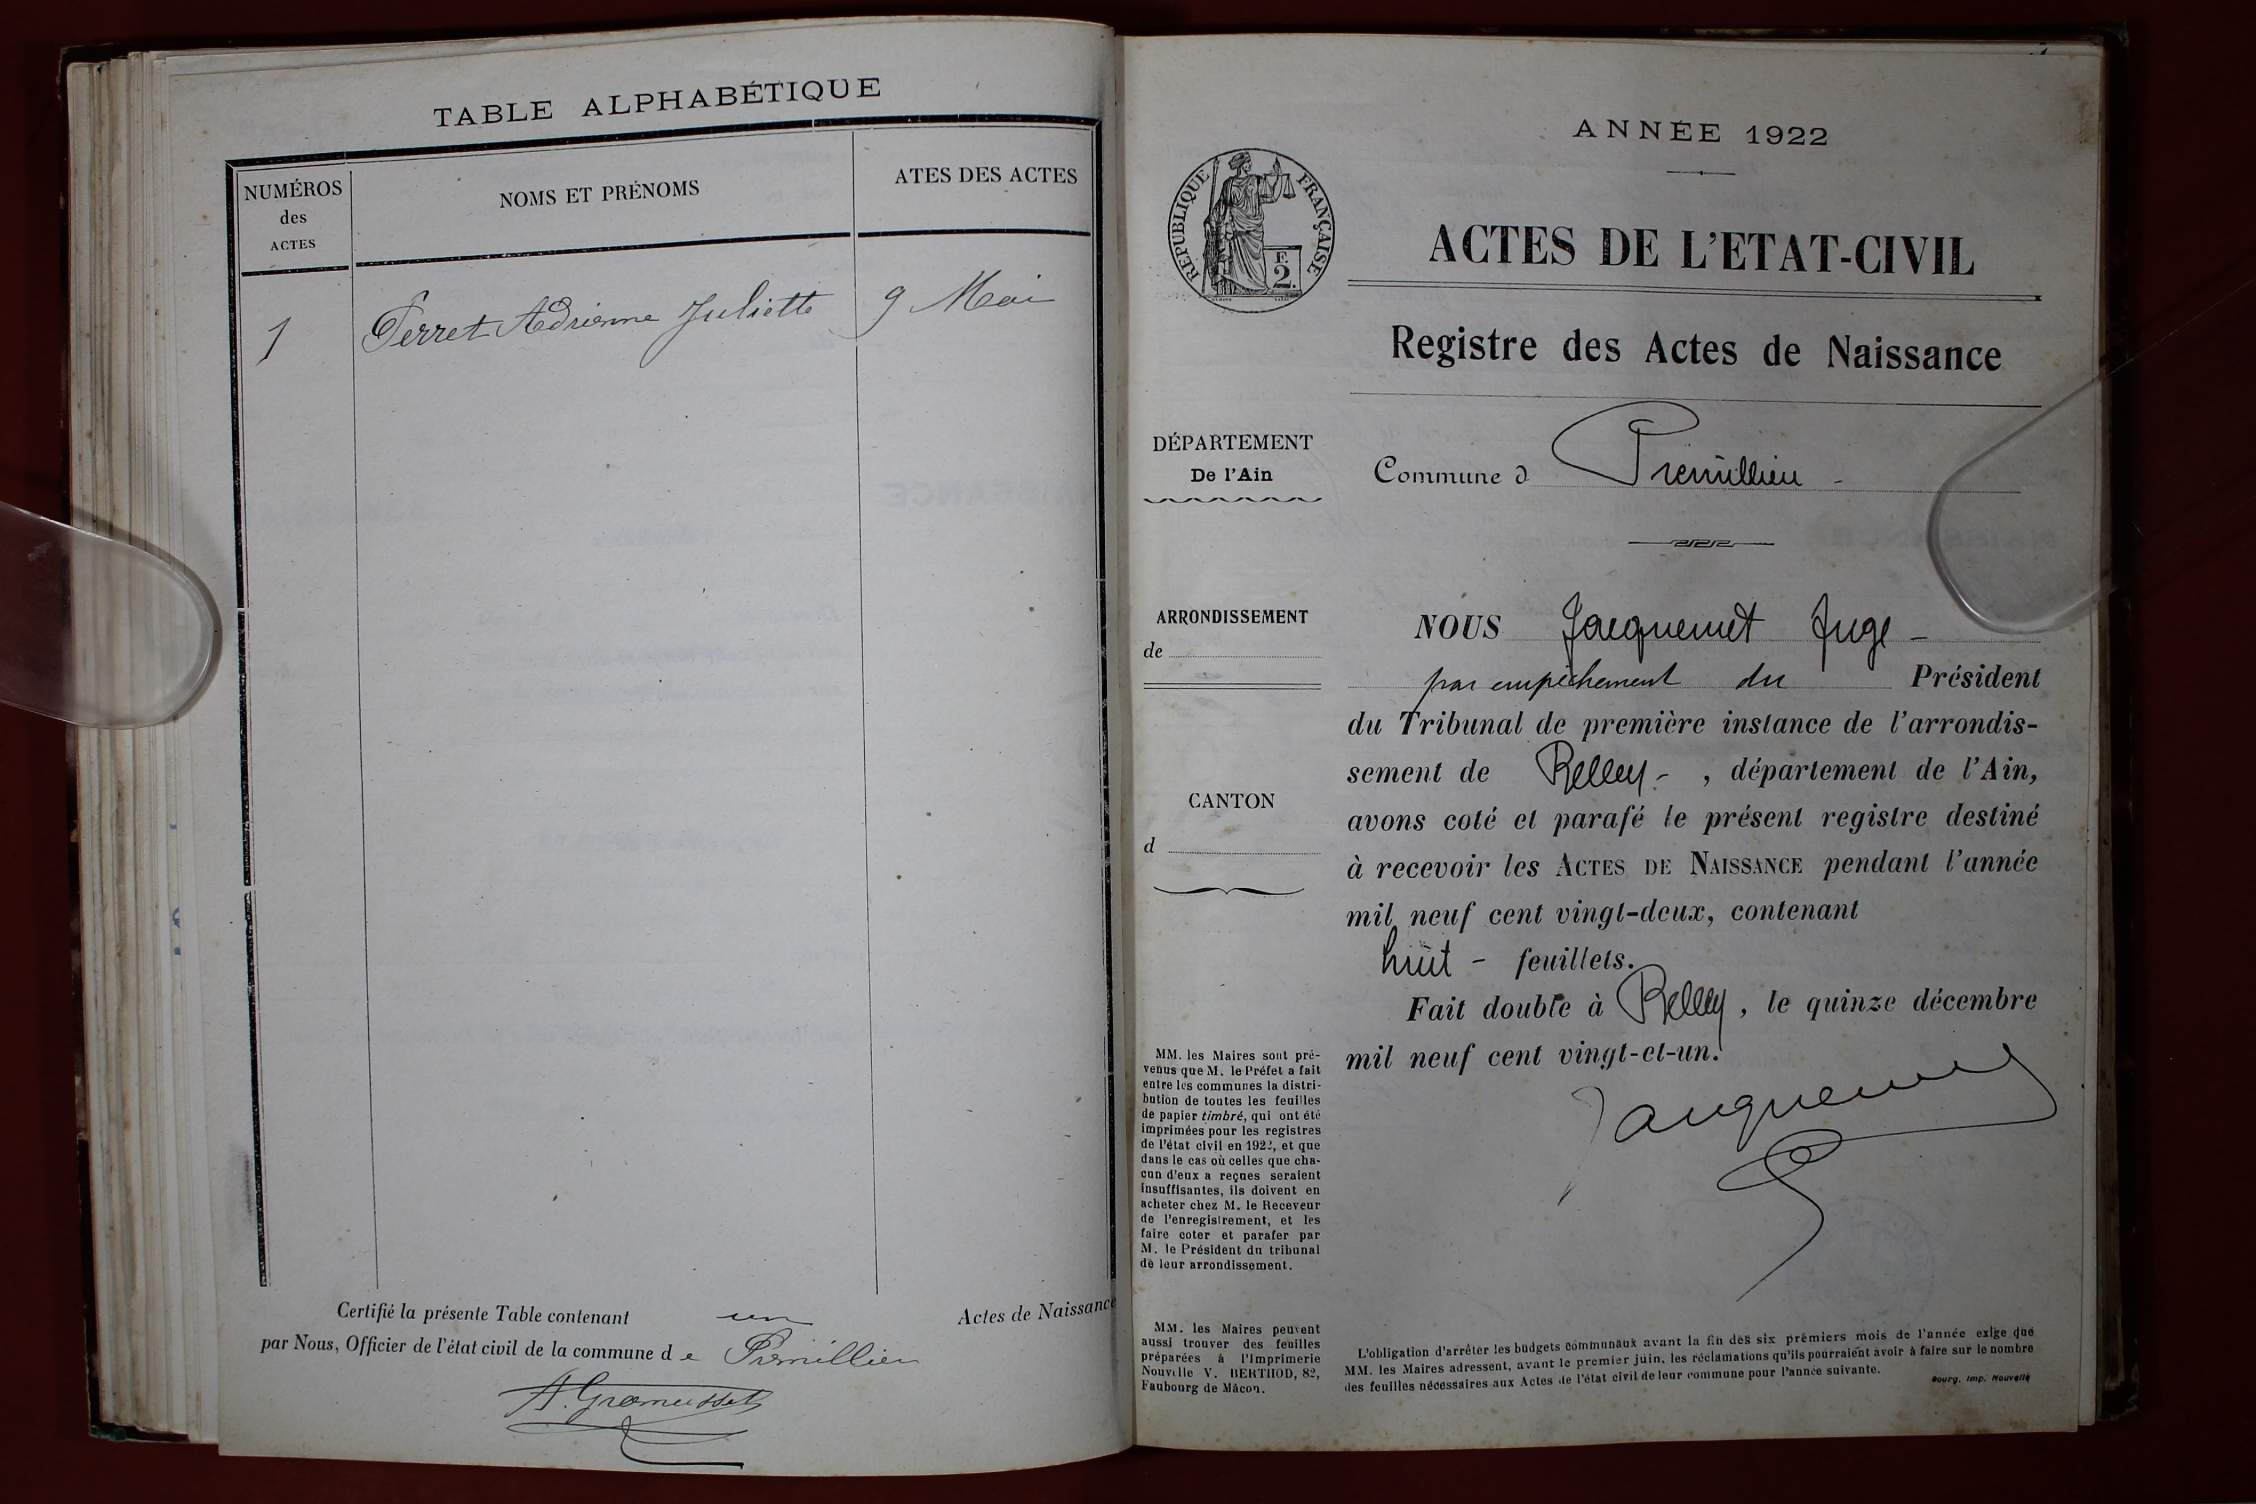 TABLE ALPHABÉTIQUE
NUMÉROS
des
ACTES
NOMS ET PRÉNOMS
ATES DES ACTES
1
Perret Adrienne Juliette
9 Mai
Certifié la présente Table contenant un Actes de Naissance
par Nous, Officier de l'état civil de la commune d e Prémillieu
A. Gramusset
ANNÉE 1922
RÉPUBLIQUE FRANÇAISE
F.
2.
ACTES DE L'ETAT-CIVIL
Registre des Actes de Naissance
DÉPARTEMENT
De l'Ain
Commune d Prémillieu -
ARRONDISSEMENT
de
CANTON
d
NOUS Jacquemet Juge -
par empêchement du Président
du Tribunal de première instance de l'arrondis-
sement de Belley - , département de l'Ain,
avons coté et parafé le présent registre destiné
à recevoir les ACTES DE NAISSANCE pendant l'année
mil neuf cent vingt-deux, contenant
huit - feuillets.
Fait double à Belley, le quinze décembre
mil neuf cent vingt-et-un.
Jacquemet
MM. les Maires sont pré-
venus que M. le Préfet a fait
entre les communes la distri-
bution de toutes les feuilles
de papier timbré, qui ont été
imprimées pour les registres
de l'état civil en 1922, et que
dans le cas où celles que cha-
cun d'eux a reçues seraient
insuffisantes, ils doivent en
acheter chez M. le Receveur
de l'enregistrement, et les
faire coter et parafer par
M. le Président du tribunal
de leur arrondissement.
MM. les Maires peuvent
aussi trouver des feuilles
préparées à l'Imprimerie
Nouvelle V. BERTHOD, 82,
Faubourg de Mâcon.
L'obligation d'arrêter les budgets communaux avant la fin des six premiers mois de l'année exige que
MM. les Maires adressent, avant le premier juin, les réclamations qu'ils pourraient avoir à faire sur le nombre
des feuilles nécessaires aux Actes de l'état civil de leur commune pour l'année suivante.
Bourg. Imp. Nouvelle